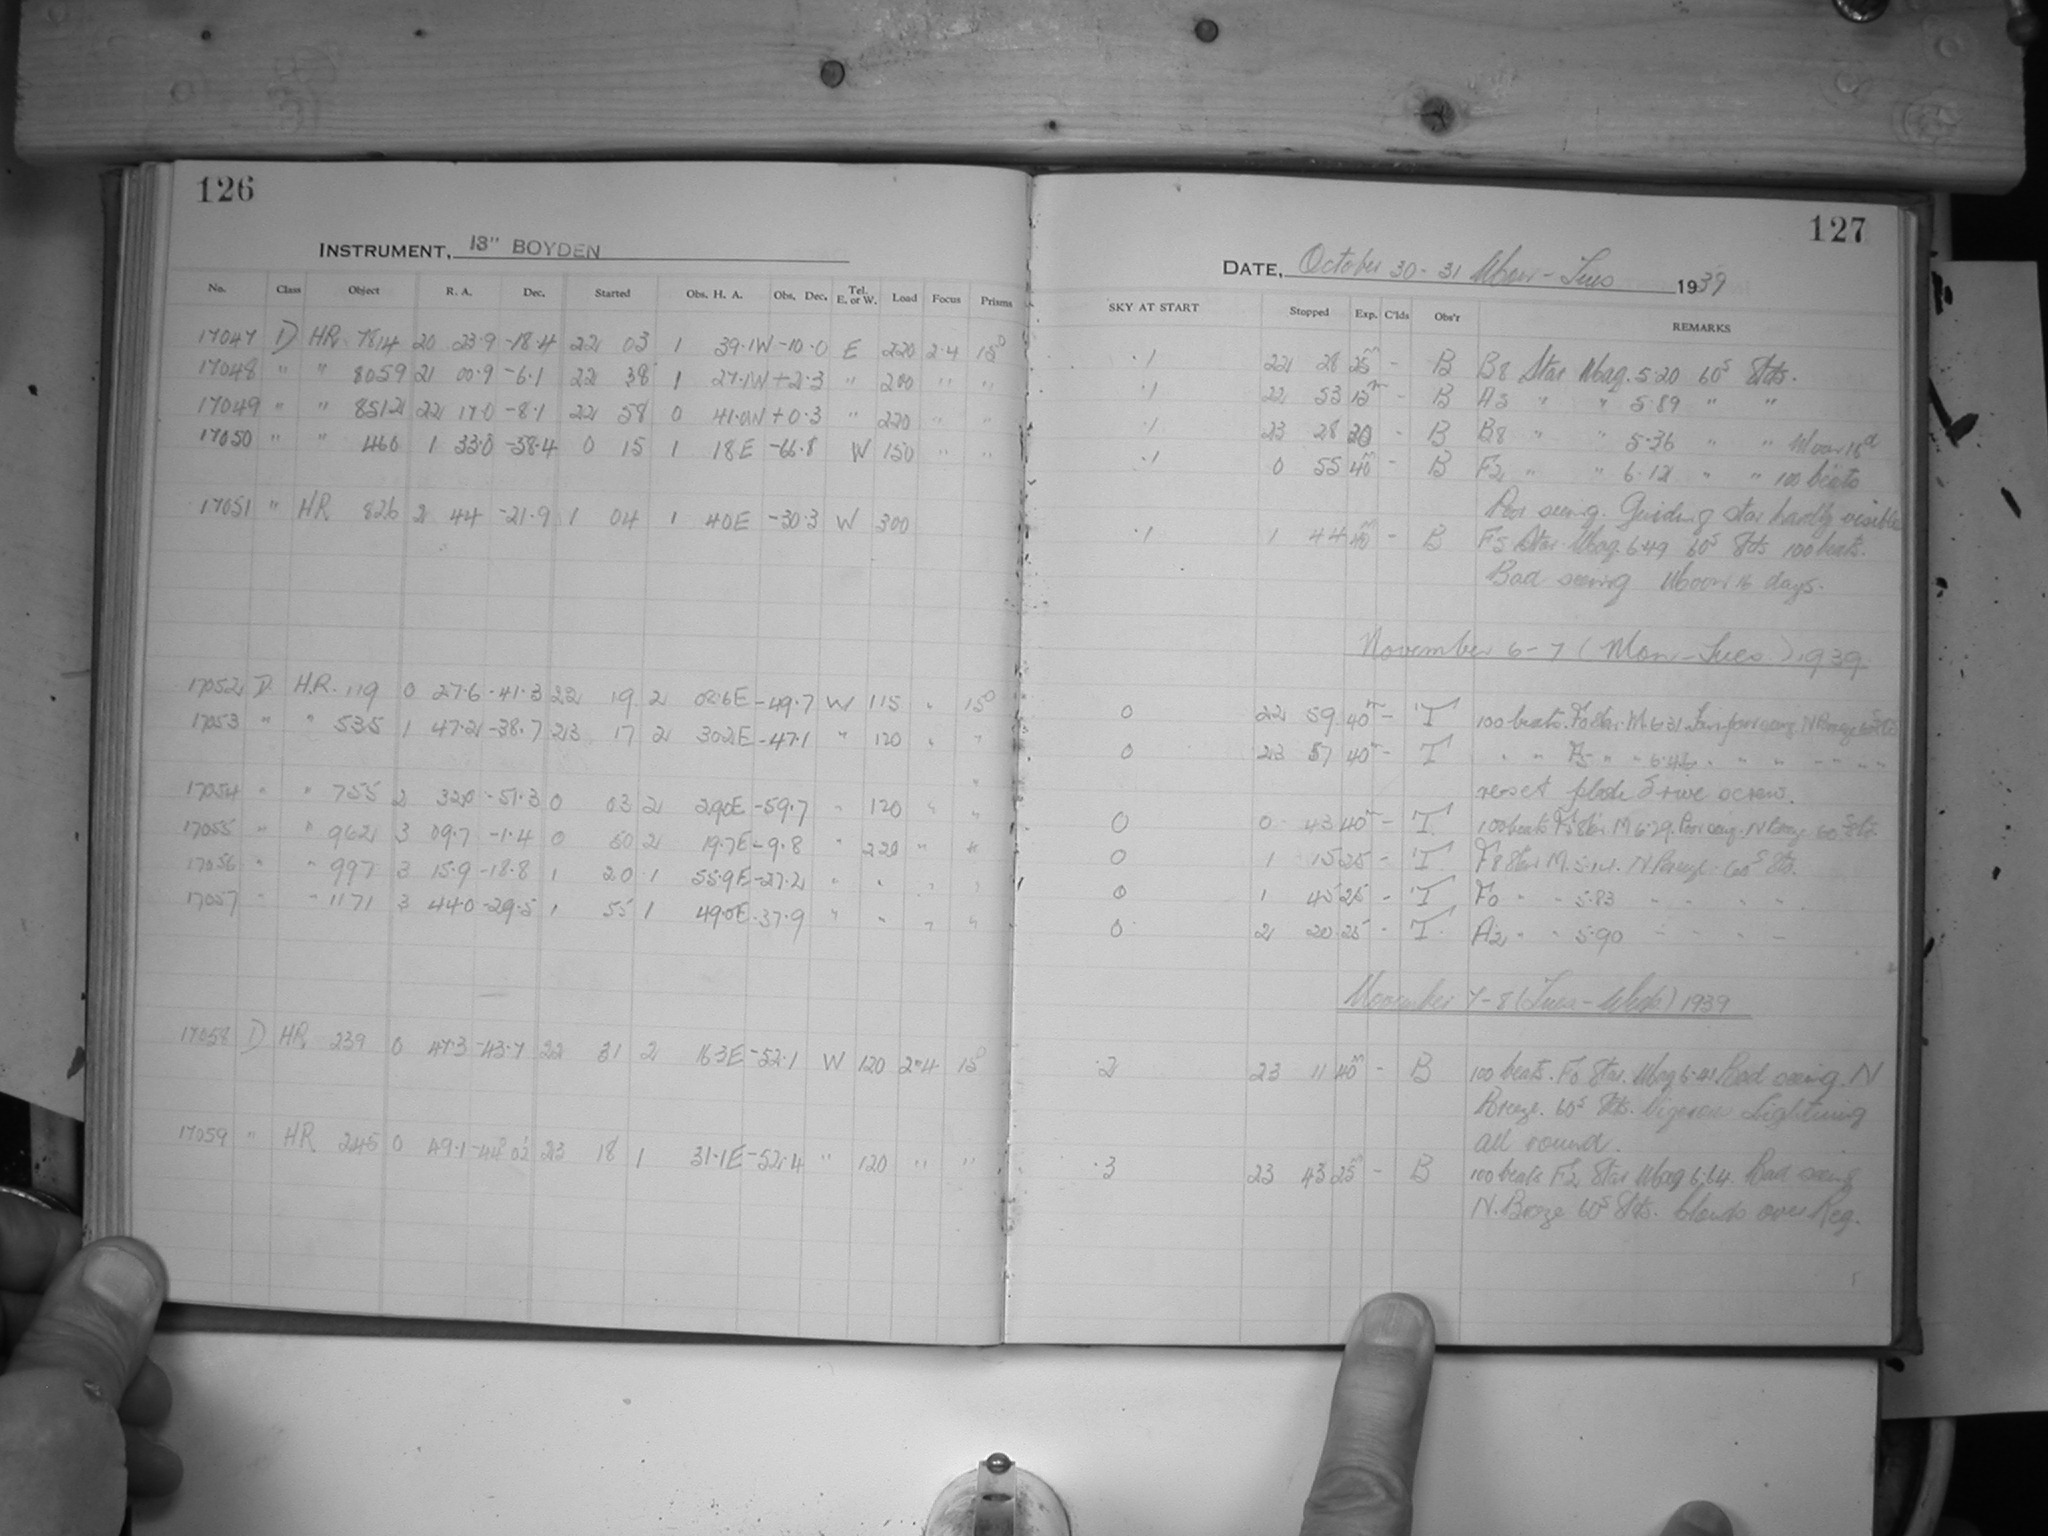 126
INSTRUMENT, 13" BOYDEN
No. Class Object R. A. Dec. Started Obs. H. A. Obs. Dec. Tel. E. or W. Load Focus Prisms
17047 D HR 7814 20 23.9 -18.4 22 03 1 39.1W -10.0 E 220 2.4 15°
17048 " " 8059 21 00.9 -6.1 22 38 1 27.1W +2.3 " 200 " "
17049 " " 8512 22 17.0 -8.1 22 58 0 41.0W +0.3 " 220 " "
17050 " " 460 1 33.0 -58.4 0 15 1 18E -66.8 W 150 " "
17051 " HR 826 2 44 -21.9 1 04 1 40E -30.3 W 300
17052 D H.R. 119 0 27.6 -41.3 22 19 2 02.6E -49.7 W 115 " 15°
17053 " " 535 1 47.2 -38.7 23 17 2 30.2E -47.1 " 120 " "
17054 " " 755 2 32.0 -51.3 0 03 2 29.0E -59.7 " 120 " "
17055 " " 962 3 09.7 -1.4 0 50 2 19.7E -9.8 " 220 " "
17056 " " 997 3 15.9 -18.8 1 20 1 55.9E -27.2 " " " "
17057 " " 1171 3 44.0 -29.5 1 55 1 49.0E -37.9 " " " "
17058 D HR 239 0 47.3 -43.7 22 31 2 16.3E -52.1 W 120 2.4 15°
17059 " HR 245 0 49.1 23 18 1 31.1E -52.4 " 120 " "
127
DATE, October 30-31 Mon-Tues 1939
SKY AT START Stopped Exp. C'lds Obs'r REMARKS
.1 22 28 25m - B B8 Star Mag. 5.20 60s Sts.
.1 22 53 15m - B A3 " " 5.89 " "
.1 23 28 30 - B B8 " " 5.36 " " Moon 18d
.1 0 55 40m - B F2 " " 6.12 " " 100 beats
Poor seeing. Guiding star hardly visible
.1 1 44 40m - B F5 Star Mag. 6.49 60s Sts 100 beats.
Bad seeing Moon 16 days.
November 6-7 (Mon-Tues.) 1939
0 22 59 40m - T 100 beats. F0 Star. M. 6.31. N Breeze 60s Sts
0 23 57 40 - T " " F5 " " 6.46 " " " " " "
reset plate drive screw.
0 0 43 40m - T 100 beats F5 Star. M 6.29. Poor seeing. N Breeze 60s Sts.
0 1 15 25 - T F8 Star M. 5.14. N Breeze. 60s Sts.
0 1 45 25 - T F0 " " 5.83 " " " "
0 2 20 25 - T A2 " " 5.90 " " " "
November 7-8 (Tues-Weds) 1939
.2 23 11 40m - B 100 beats. F0 Star. Mag 6.41 Bad seeing. N
Breeze. 60s Sts. Vigorous Lightning
all round.
.3 23 43 25m - B 100 beats F2 Star Mag 6.64. Bad seeing
N. Breeze 60s Sts. Clouds over Reg.